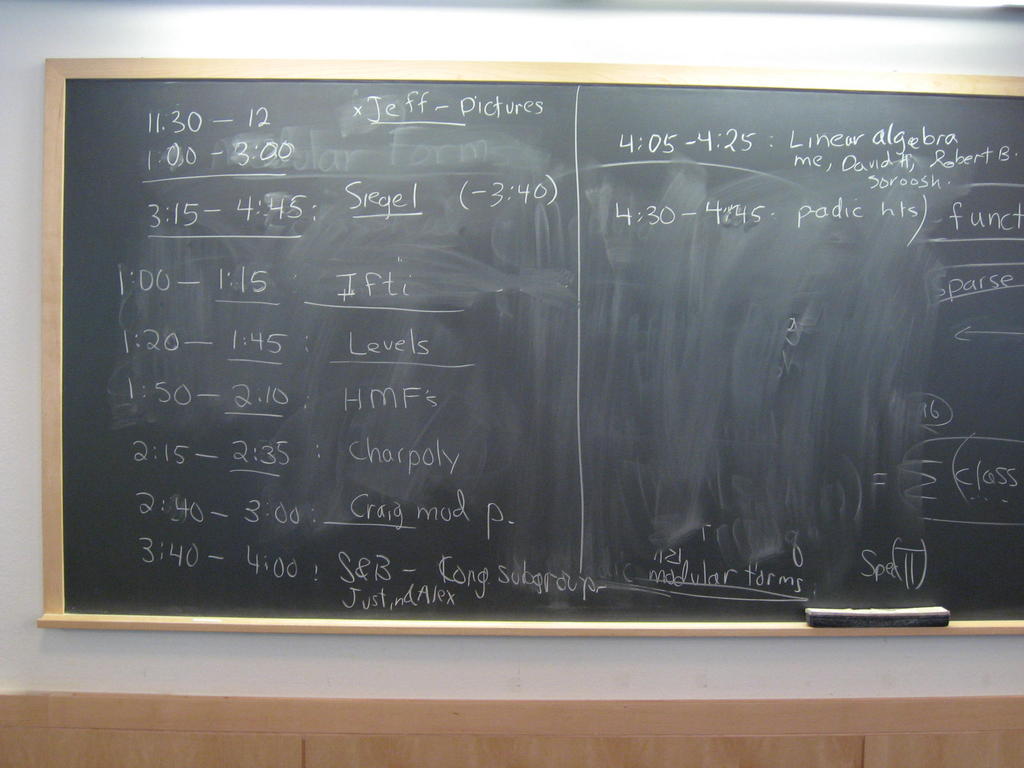 11:30 – 12
x Jeff – Pictures
1:00 – 3:00
3:15 – 4:45: Siegel (–3:40)
1:00 – 1:15 : Ifti
1:20 – 1:45 : Levels
1:50 – 2:10 : HMF's
2:15 – 2:35 : Charpoly
2:40 – 3:00: Craig mod p.
3:40 – 4:00: S&B – Cong subgroup
Justin & Alex
4:05 – 4:25 : Linear algebra
me, David H, Robert B.
Soroosh.
4:30 – 4:45. padic hts)
funct
sparse
←
16
= Σ (Class
n≥1
q
modular forms
Spec(T)